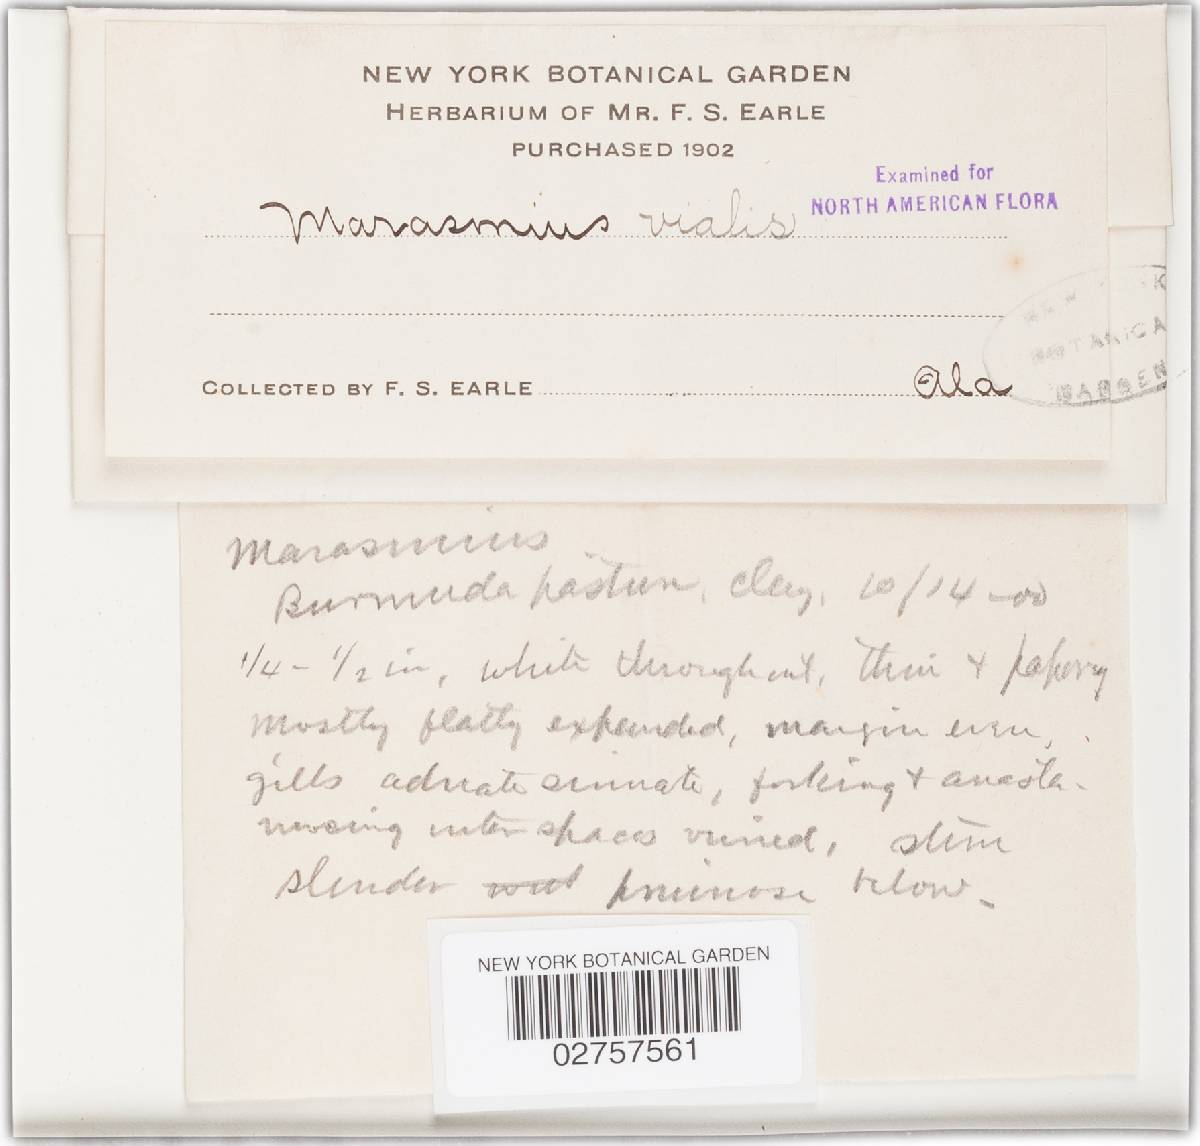 NEW YORK BOTANICAL GARDEN
HERBARIUM OF MR. F. S. EARLE
PURCHASED 1902
Examined for
NORTH AMERICAN FLORA
Marasmius vialis
COLLECTED BY F. S. EARLE Ala
BOTANICA
GARDEN
Marasmius
Bermuda pasture, clay, 10/14-00
1/4 - 1/2 in, white throughout, thin + papery
mostly flatly expanded, margin even,
gills adnate sinuate, forking + anasto-
mosing inter spaces veined, stem
slender pruinose below -
NEW YORK BOTANICAL GARDEN
02757561